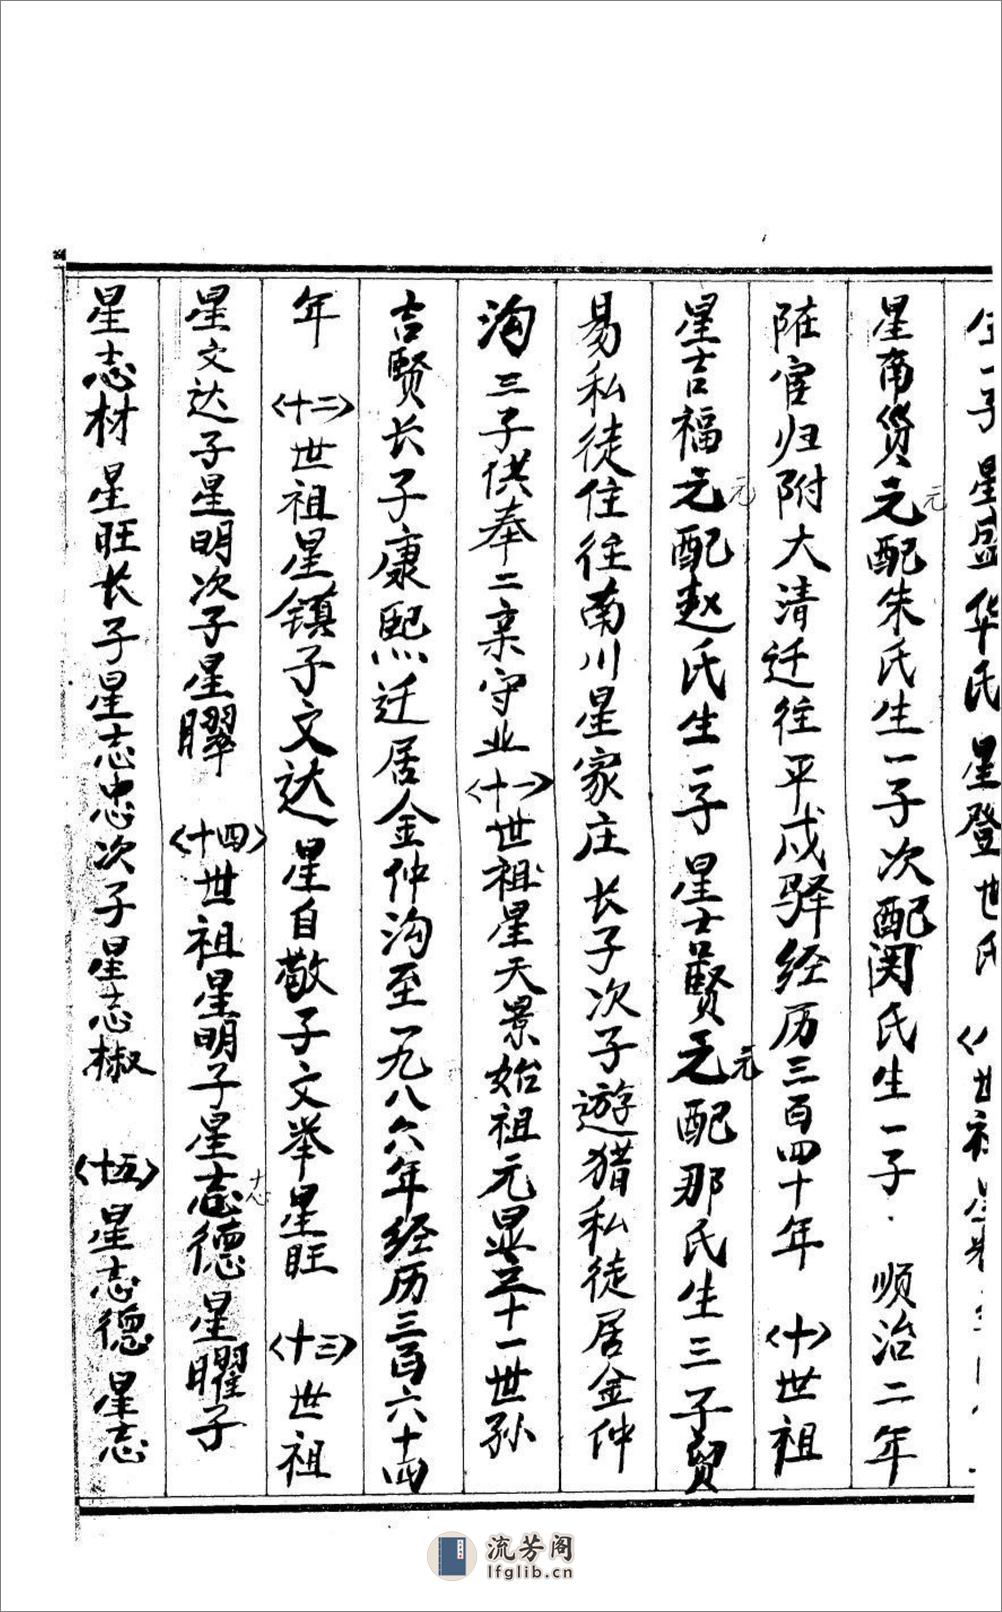 一子 星盛华氏 星登世氏 〈八〉世祖星
星南贤元配朱氏生一子次配関氏生一子.顺治二年
随官归附大清迁往平戍驿经历三百四十年 〈十〉世祖
星吉福元配赵氏生一子星士贤元配那氏生三子贸
易私徒住往南川星家庄长子次子遊猎私徒居金仲
沟三子供奉二亲守业〈十一〉世祖星天景始祖元显之十一世孙
吉贤长子康熙迁居金仲沟至一九八六年经历三百六十四
年 〈十二〉世祖星镇子文达星自敬子文举星旺 〈十三〉世祖
星文达子星明次子星曜 〈十四〉世祖星明子星志德星曜子
星志材星旺长子星志忠次子星志椒 〈十五〉星志德星志
流芳阁
lfglib.cn